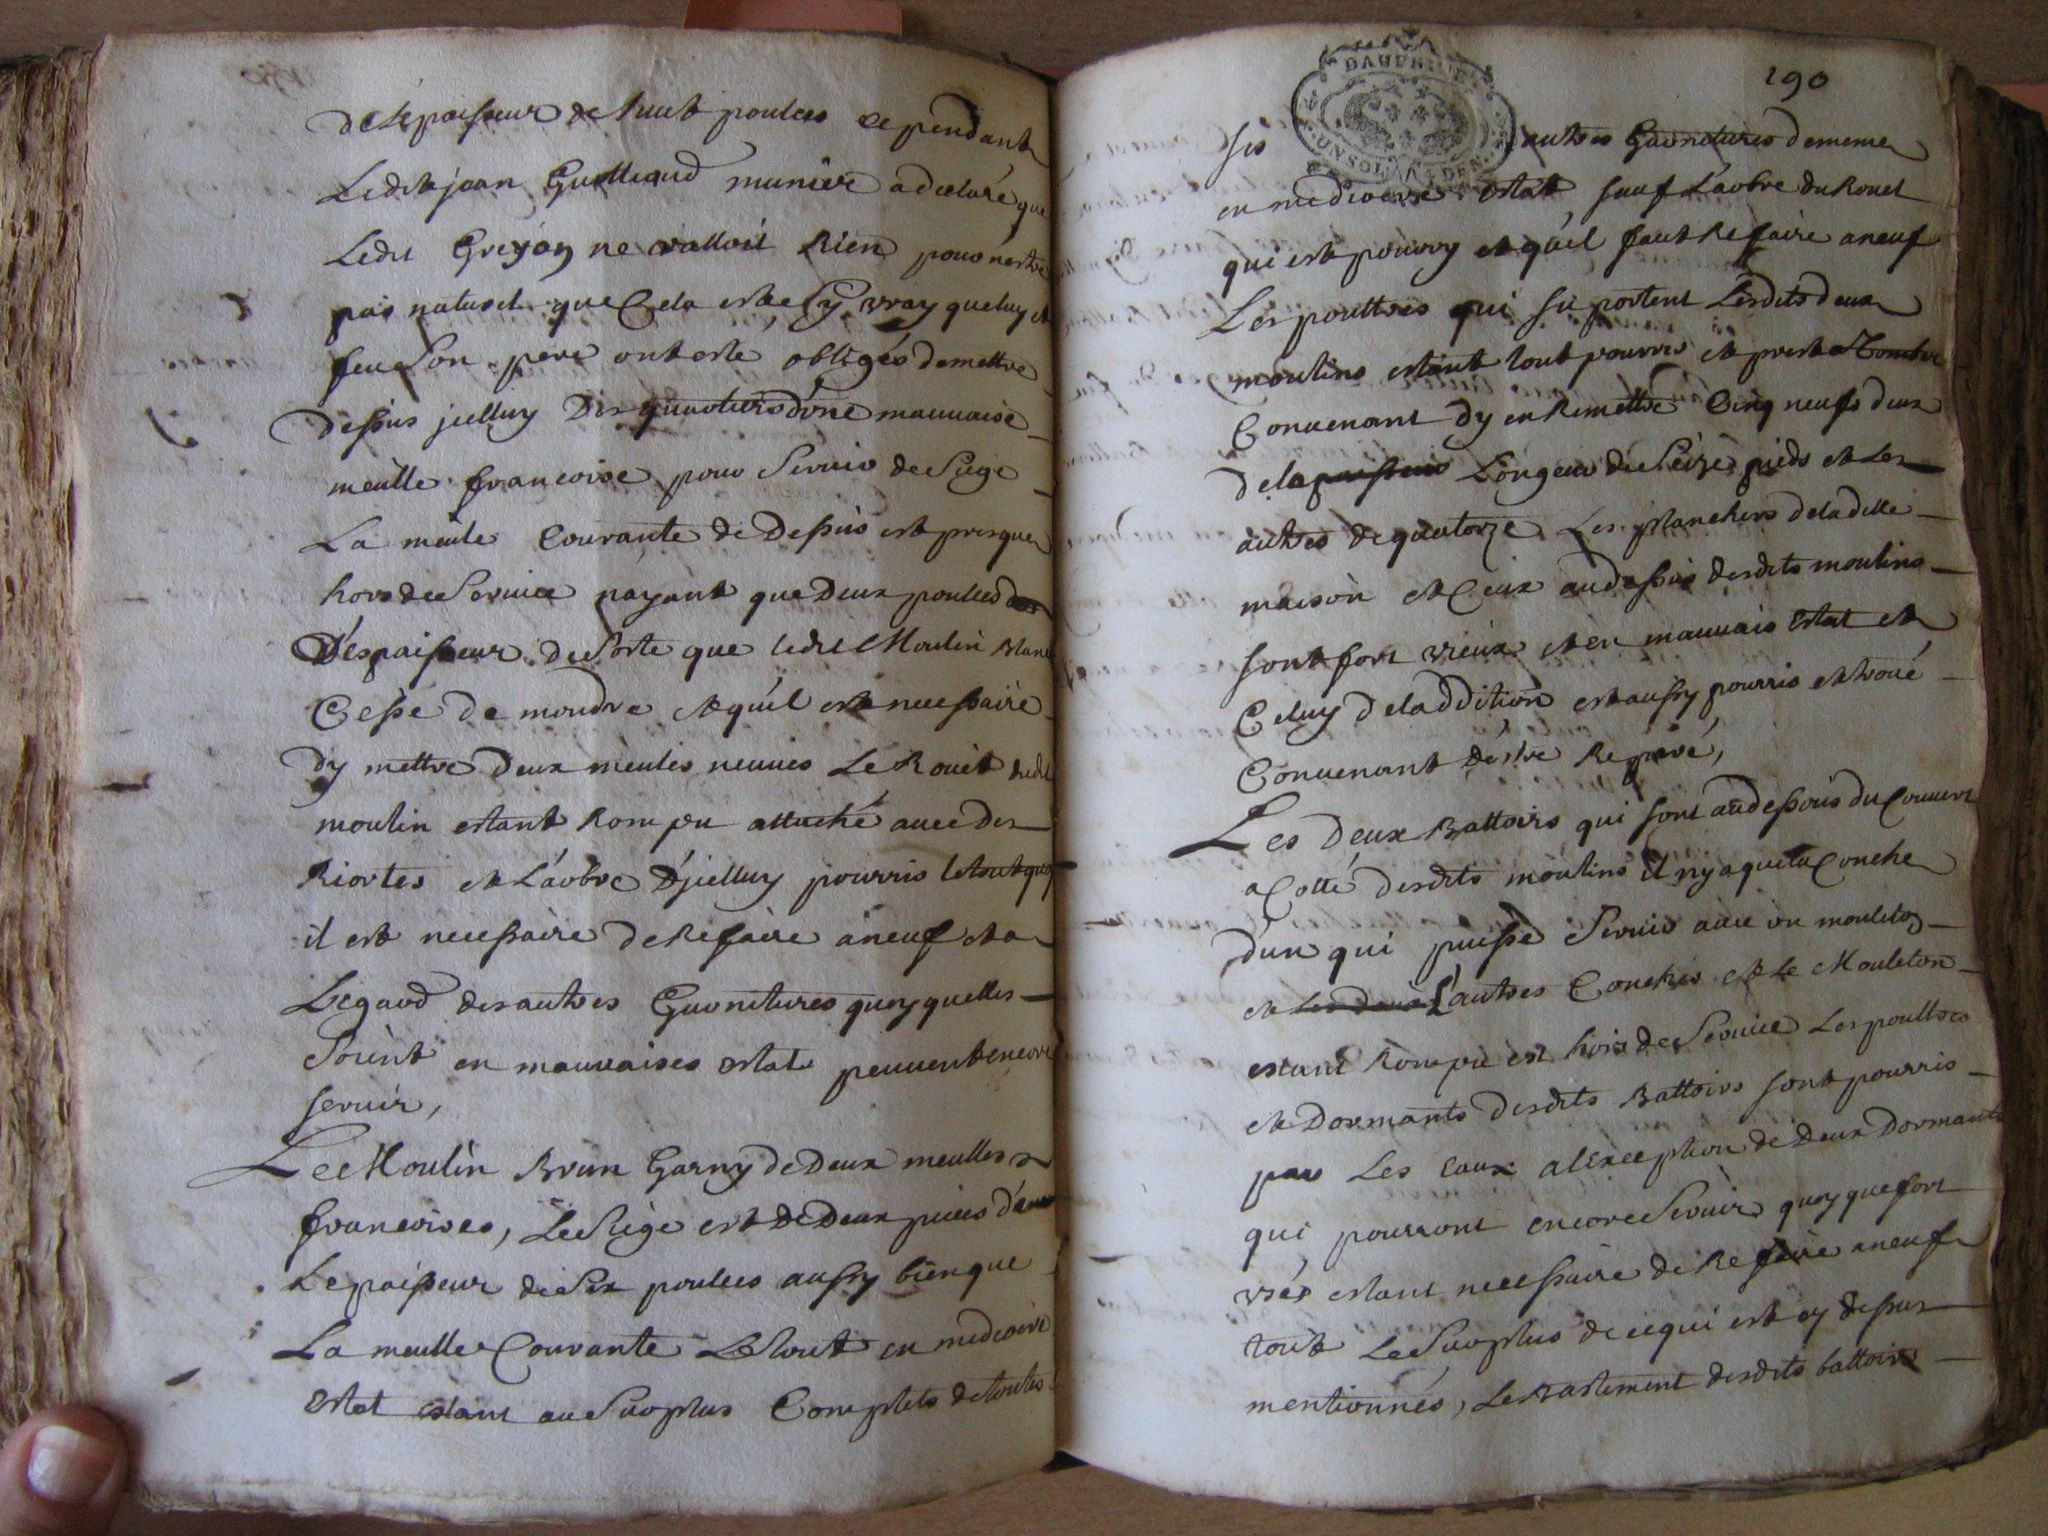 de lépaisseur de huit poulces cependant
Ledit jean Guilliaud munier a declaré que
Ledit Greyon ne valloit Rien pour nestre
pas naturel que Cela est sy vray que luy et
feu Son pere ont este obligés de mettre
dessus jcelluy des quartiers d'une mauvaise
meulle francoise pour Servir de Siege
La meule Courante de Dessus est presque
hors de Service n'ayant que Deux poulces
D'espaisseur de Sorte que ledit Moulin blanc
Cesse de moudre et qu'il est necessaire
dy mettre Deux meules neuves Le Rouet dudit
moulin estant Rompu attaché avec des
Riortes et L'arbre D'jcelluy pourris le tout quoy
il est necessaire de Refaire a neuf et a
Legard des autres Garnitures quoy quelles
Soient en mauvaises estat peuvent encore
servir,
Le Moulin Brun Garny de Deux meulles
francoises, Le Siege est de Deux pieces de
Lepaisseur de Six poulces aussy bien que
La meulle Courante Le tout en mediocre
Estat estant au Surplus Complets de toutes
190
DAUPHINE
UN SOL QU. DEN.
ses autres Garnitures de meme
en mediocre estat sauf L'arbre du Rouet
qui est pourry et qu'il faut Refaire a neuf
Les pouttres qui suportent Lesdits deux
moulins estant tout pourris et prest a Tomber
Convenant dy en Remettre Cinq neufs deux
de la paisseur Longeur de Seize pieds et Les
autres de quatorze Les planchers de la ditte
maison et Ceux au dessus desdits moulins
sont fort vieux et en mauvais Estat et
Celuy de laddition est aussy pourris et troué
Convenant destre Reparé,
Les Deux Battoirs qui sont au dessous du Couvert
a Cotté desdits moulins il ny a que la Conche
d'un qui puisse Servir avec un mouleton
et Les deux L'autres Conches et Le Mouleton
estant Rompu est hors de Service Les pouttres
et Dormants desdits Battoirs sont pourris
par Les Eaux a l'Exception de Deux Dormants
qui pourront encore Servir quoy que fort
vsés estant necessaire de Refaire a neuf
tout Le Surplus de ce qui est cy dessus
mentionnés, Le Bastiment desdits battoirs